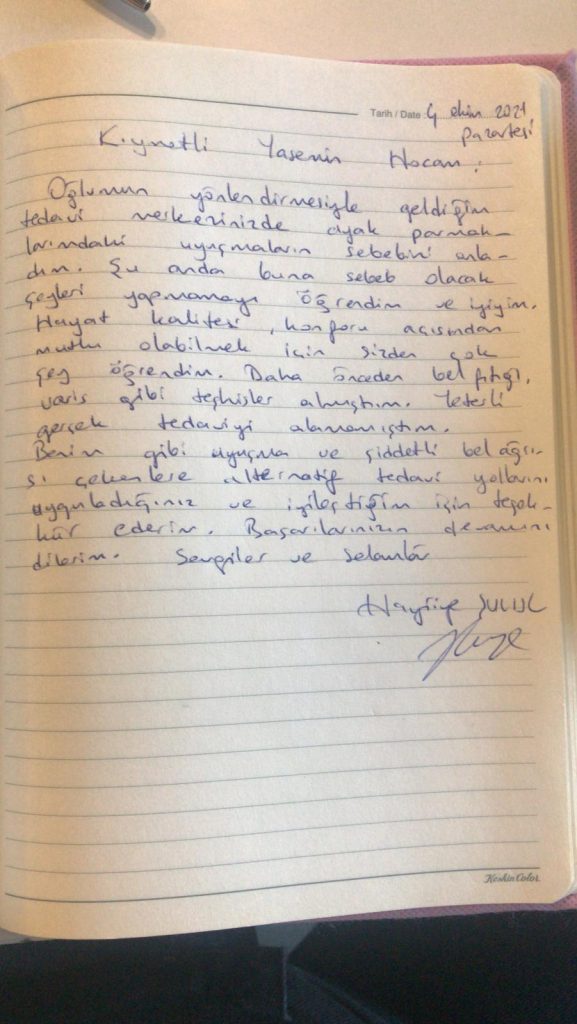 Tarih / Date 4 ekim 2021
pazartesi
Kıymetli Yasemin Hocam;
Oğlumun yönlendirmesiyle geldiğim
tedavi merkezinizde ayak parmak-
larındaki uyuşmaların sebebini anla-
dım. Şu anda buna sebeb olacak
şeyleri yapmamayı öğrendim ve iyiyim.
Hayat kalitesi, konforu açısından
mutlu olabilmek için sizden çok
şey öğrendim. Daha önceden bel fıtığı,
varis gibi teşhisler almıştım. Yeterli
gerçek tedaviyi alamamıştım.
Benim gibi uyuşma ve şiddetli bel ağrı-
sı çekenlere alternatif tedavi yollarını
uyguladığınız ve iyileştiğim için teşek-
kür ederim. Başarılarınızın devamını
dilerim. Sevgiler ve Selamlar
Hayriye
Keskin Color